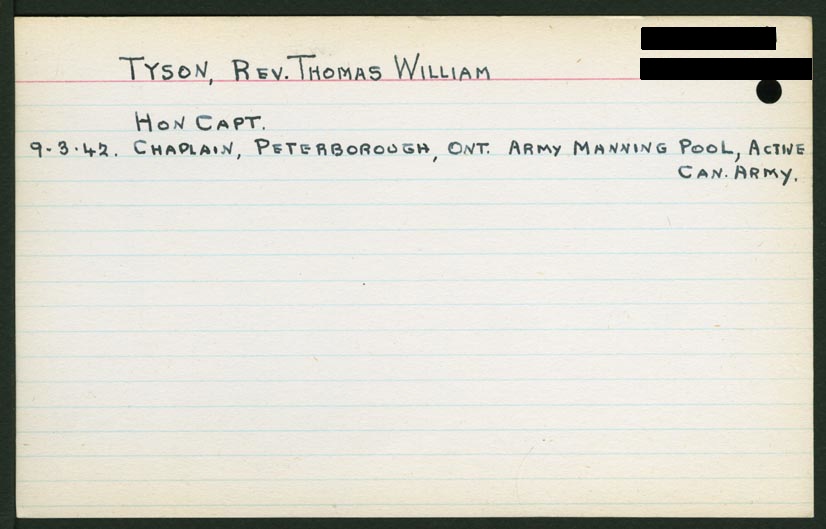 TYSON, REV. THOMAS WILLIAM
HON CAPT.
9-3-42. CHAPLAIN, PETERBOROUGH, ONT. ARMY MANNING POOL, ACTIVE
CAN. ARMY.